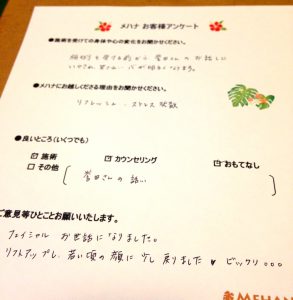 メハナ お客様アンケート
●施術を受けての身体や心の変化をお聞かせください。
施術を受ける前から 誉田さんの お話しに
いやされ 心が明るくなります。
●メハナにお越しくださる理由をお聞かせください。
リフレッシュ ストレス
●良いところ(いくつでも)
☑ 施術 ☑ カウンセリング ☑ おもてなし
□ その他
誉田さんの 話い
ご意見等ひとことお願いいたします。
フェイシャル お世話になりました。
リフトアップし 若い頃の顔に 少し戻りました ♥ ビックリ。。。
MEHANA